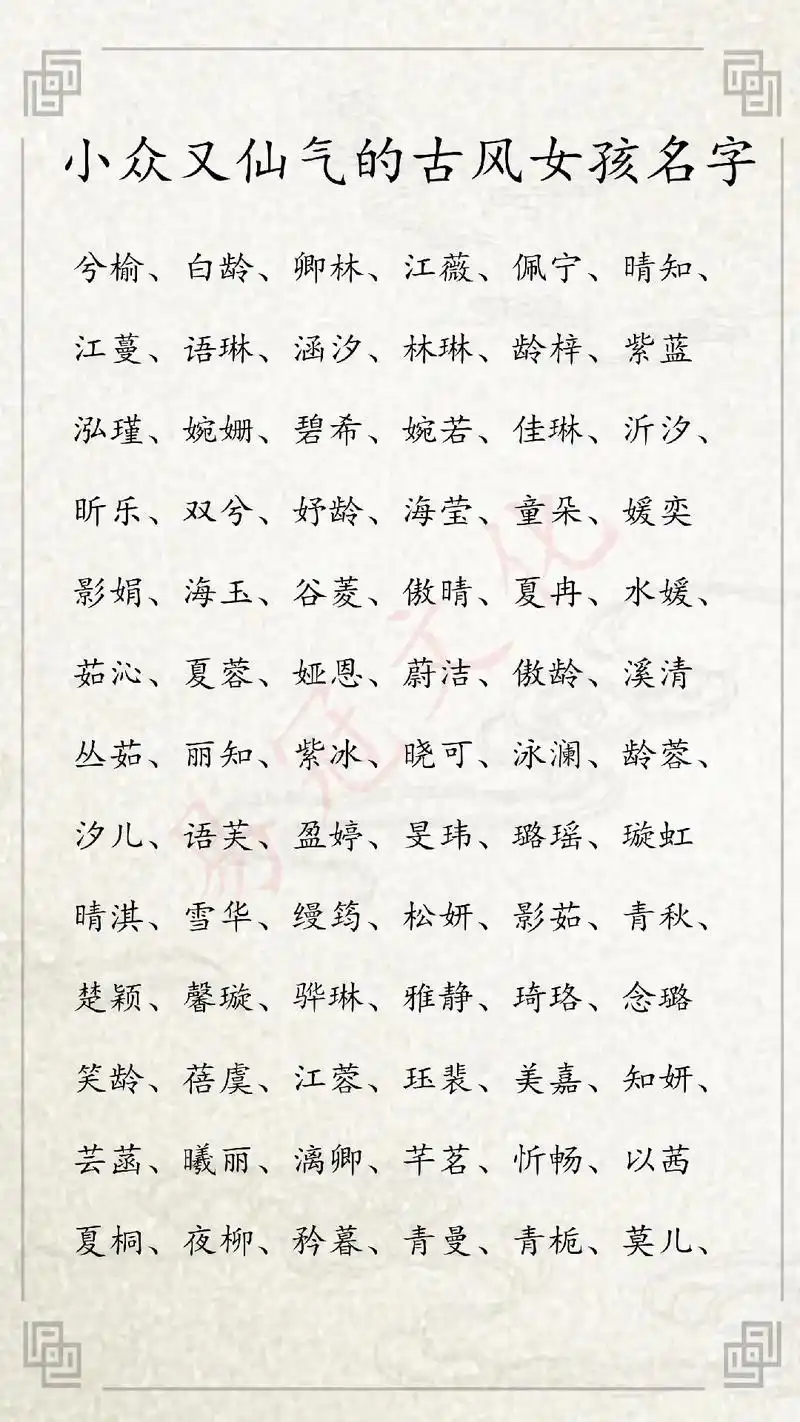 小众又仙气的古风女孩名字
兮榆、白龄、卿林、江薇、佩宁、晴知、
江蔓、语琳、涵汐、林琳、龄梓、紫蓝
泓瑾、婉姗、碧希、婉若、佳琳、沂汐、
昕乐、双兮、妤龄、海莹、童朵、媛奕
影娟、海玉、谷菱、傲晴、夏冉、水媛、
茹沁、夏蓉、娅恩、蔚洁、傲龄、溪清
丛茹、丽知、紫冰、晓可、泳澜、龄蓉、
汐儿、语芙、盈婷、旻玮、璐瑶、璇虹
晴淇、雪华、缦筠、松妍、影茹、青秋、
楚颖、馨璇、骅琳、雅静、琦珞、念璐
笑龄、蓓虞、江蓉、珏裴、美嘉、知妍、
芸菡、曦丽、漓卿、芊茗、忻畅、以茜
夏桐、夜柳、矜暮、青曼、青栀、莫儿、